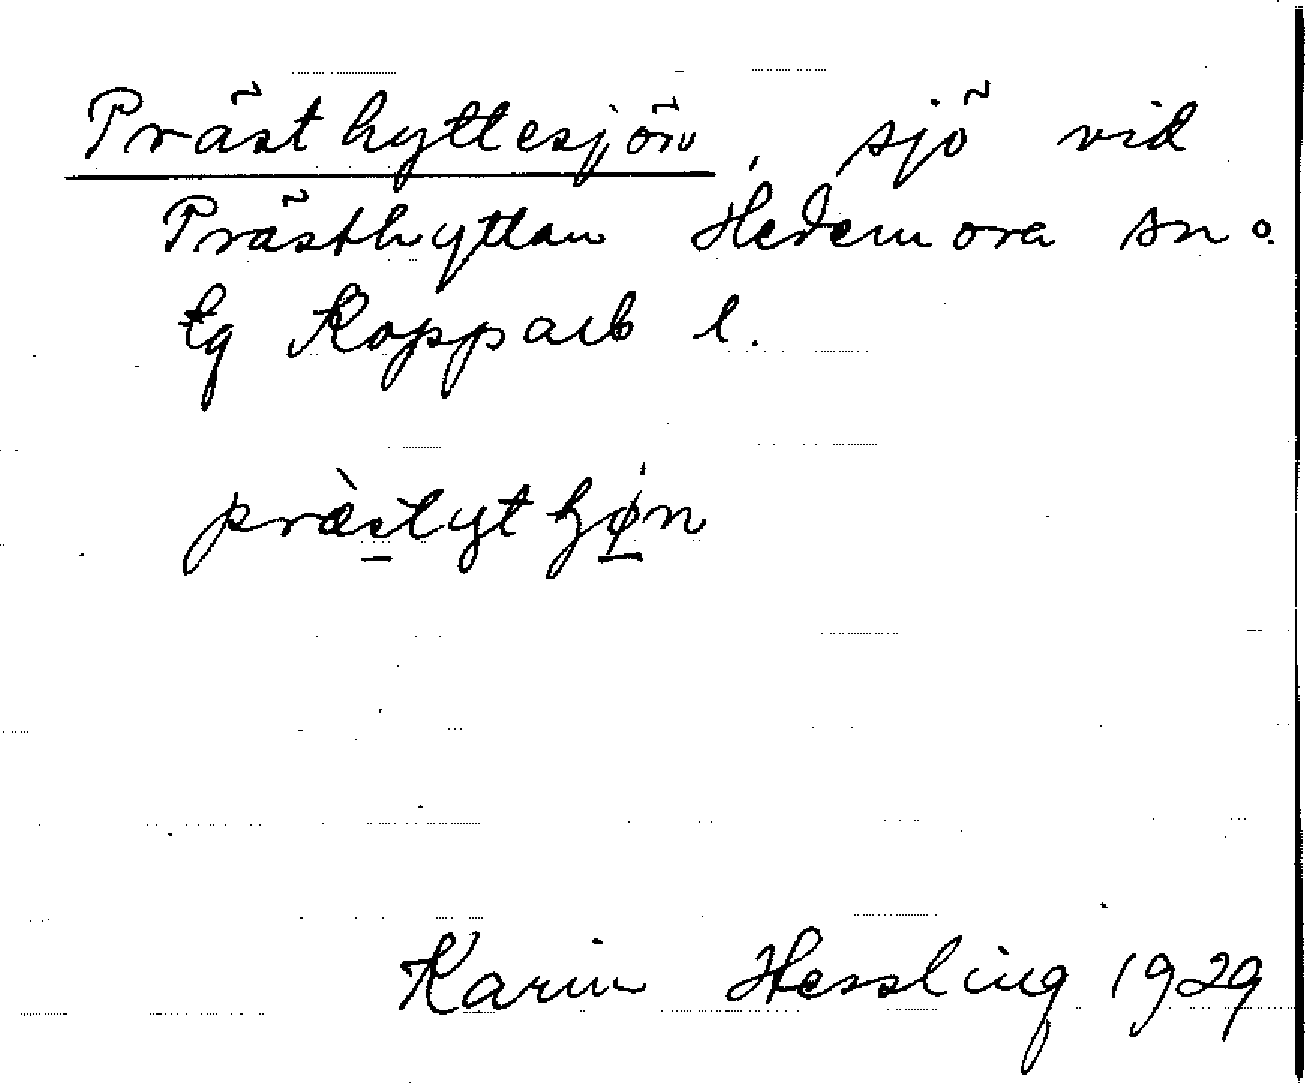 Prästhyttesjön, sjö vid
Prästhyttan Hedemora sn o.
tg Kopparb l.
præ̀stythøn
Karin Hessling 1929